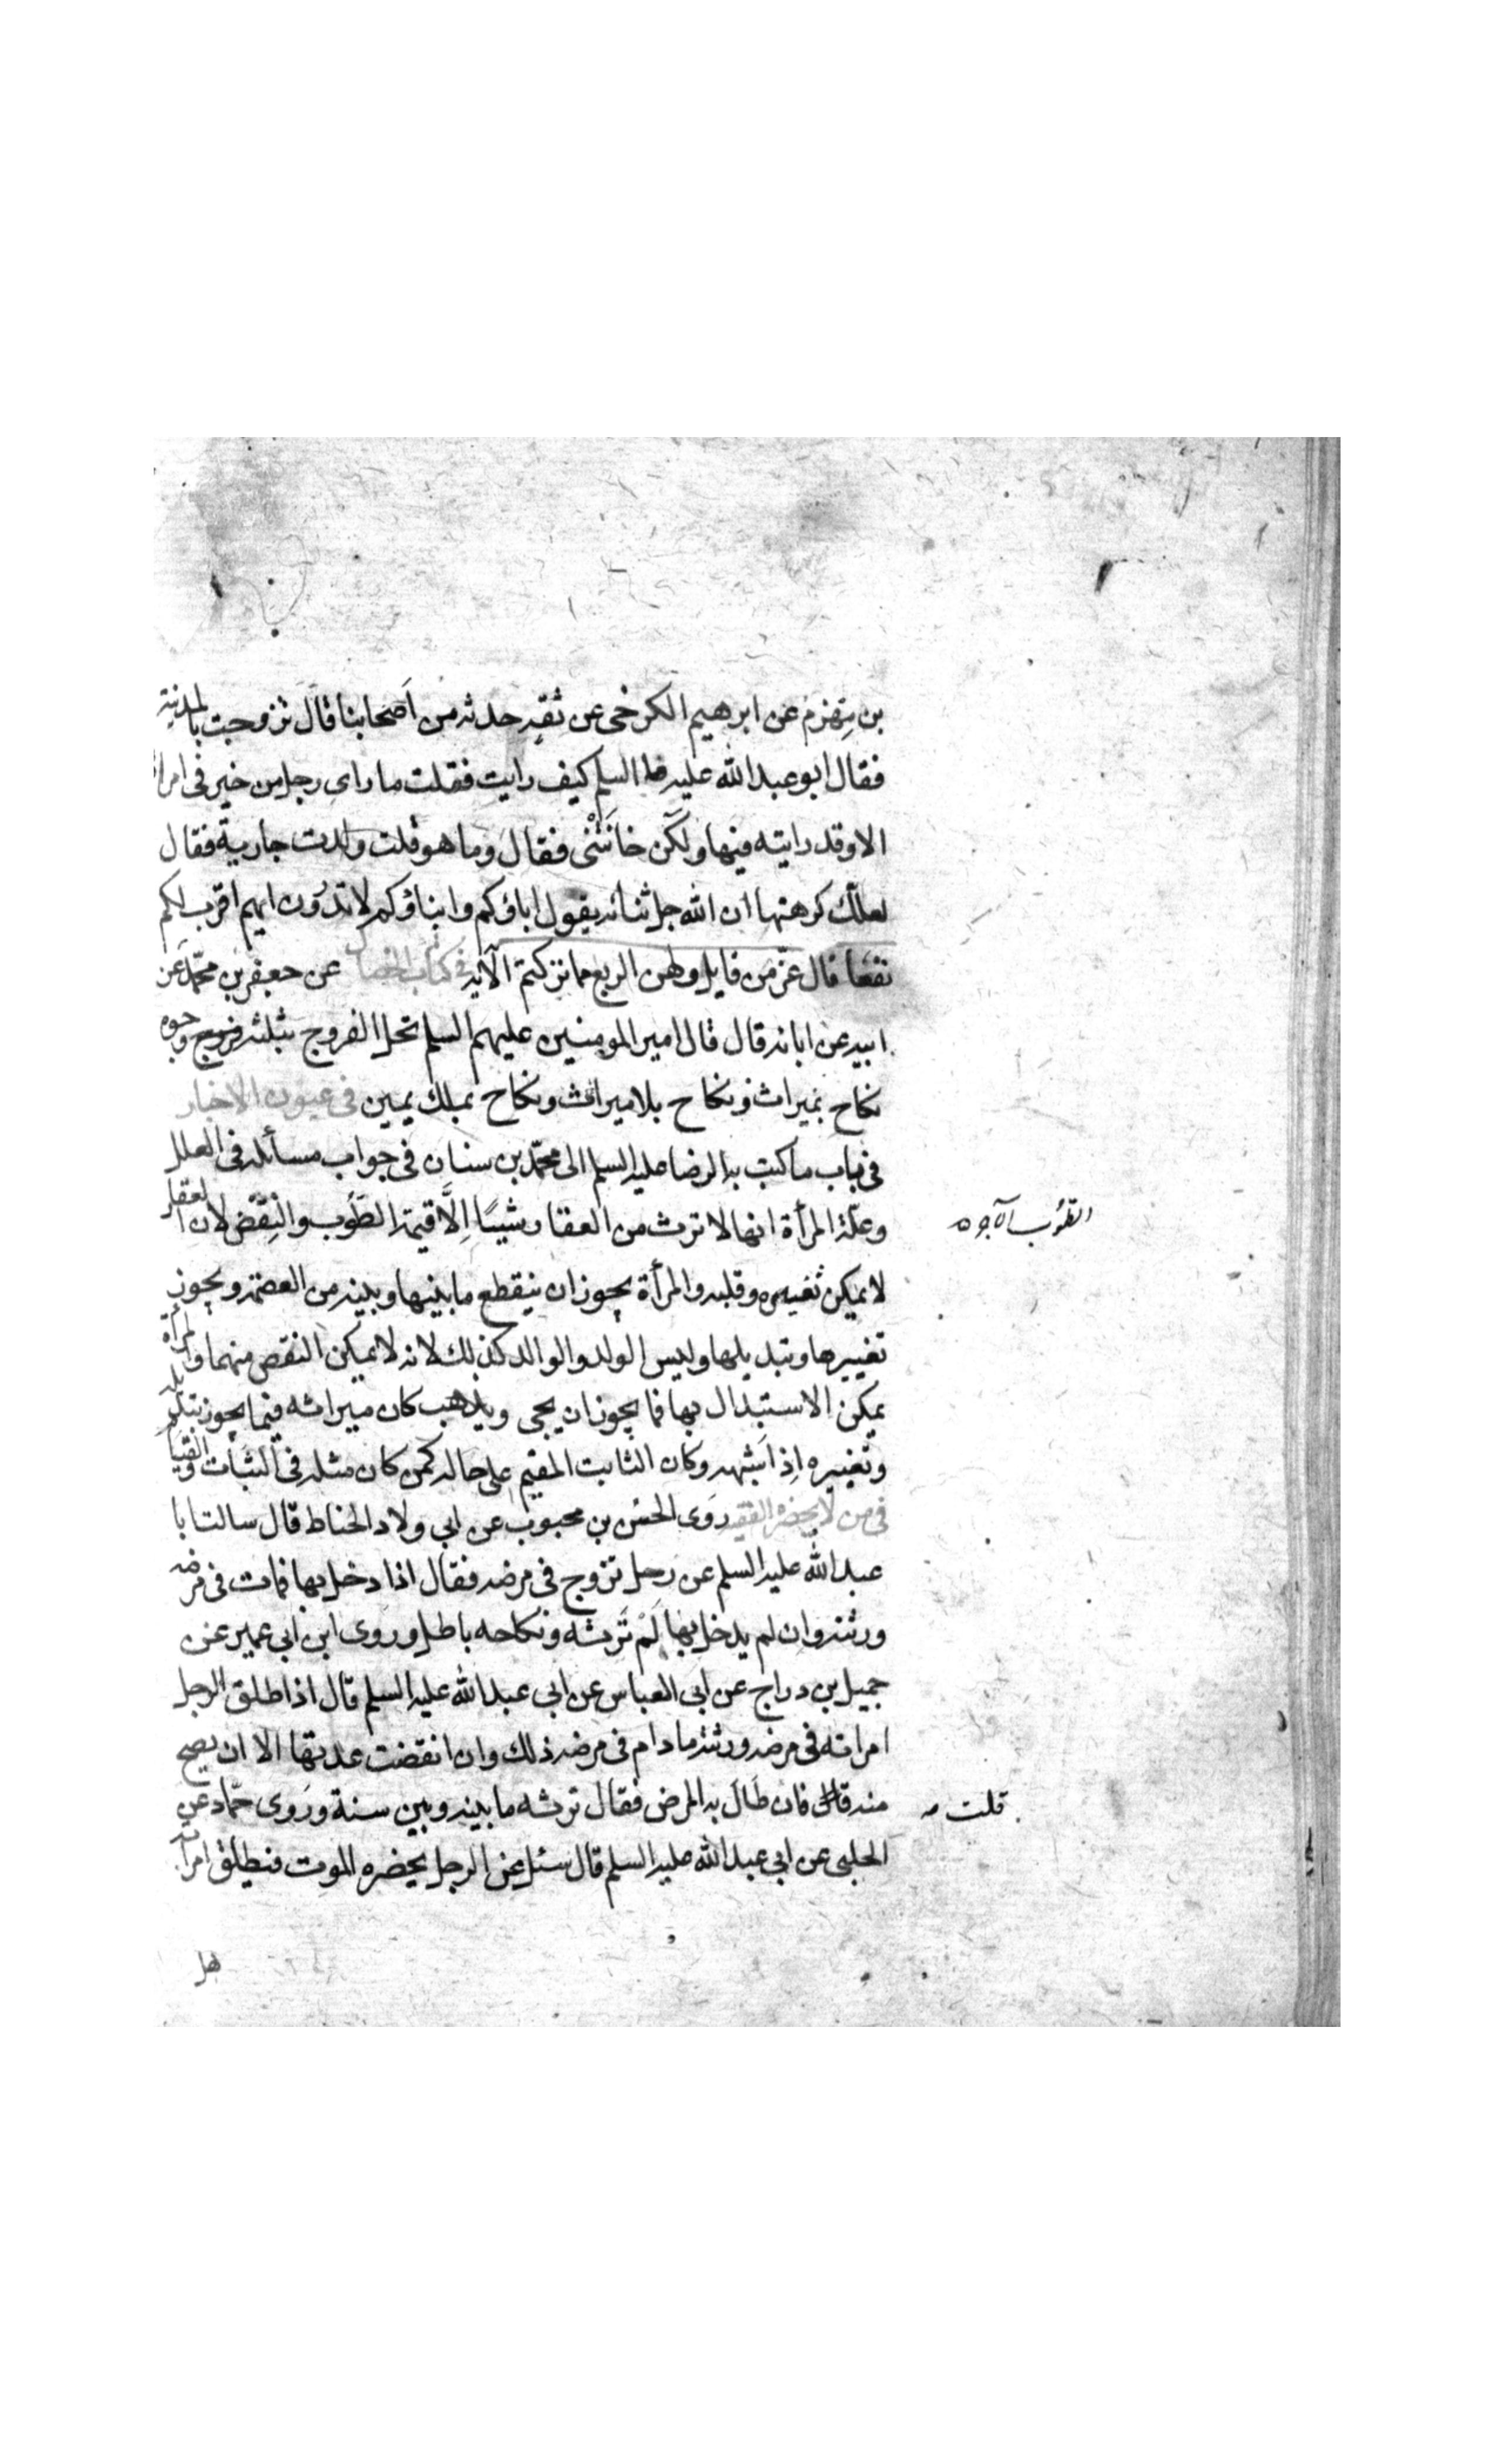 بن مهزم عن ابرهيم الكرخى عن ثقة حدثه من اصحابنا قال تزوجت بالمدينة
فقال ابو عبد الله عليه السلم كيف رايت فقلت ما راى رجل من خير فى امراة
الا وقد رايته فيها ولكن خانتنى فقال وما هو قلت ولدت جارية فقال
لعلك كرهتها ان الله جل ثنائه يقول اباؤكم وابناؤكم لا تدرون ايهم اقرب لكم
نفعا قال عز من قايل ولهن الربع مما تركتم الآية فى كتاب الخصال عن جعفر بن محمد عن
ابيه عن ابائه قال قال امير المومنين عليهم السلم تحل الفروج بثلثة وجوه
نكاح بميراث ونكاح بلا ميراث ونكاح بملك يمين فى عيون الاخبار
فى باب ما كتب به الرضا عليه السلم الى محمد بن سنان فى جواب مسائله فى العلل
وعلة المرأة انها لا ترث من العقار شيئا إلا قيمة الطوب والنقض لان العقار
لا يمكن تغييره وقلبه والمرأة يجوز ان ينقطع ما بينها وبينه من العصمة ويجوز
تغييرها وتبديلها وليس الولد والوالد كذلك لانه لا يمكن النقص منهما والمرأة
يمكن الاستبدال بها فما يجوز ان يجى ويذهب كان ميراثه فيما يجوز تبديله
وتغييره إذ اشبهه وكان الثابت المقيم على حاله كمن كان مثله فى الثبات والقيام
فى من لا يحضره الفقيه روى الحسن بن محبوب عن ابى ولاد الحناط قال سالت ابا
عبد الله عليه السلم عن رجل تزوج فى مرضه فقال اذا دخل بها فمات فى مرضه
ورثته وان لم يدخل بها لم ترثه ونكاحه باطل وروى ابن ابى عمير عن
جميل بن دراج عن ابى العباس عن ابى عبد الله عليه السلم قال اذا طلق الرجل
امراته فى مرضه ورثته ما دام فى مرضه ذلك وان انقضت عدتها الا ان يصح
منه قال فان طال به المرض فقال ترثه ما بينه وبين سنة وروى حماد عن
الحلبى عن ابى عبد الله عليه السلم قال سئل عن الرجل يحضره الموت فيطلق امراته
هل
الطوب الآجره
قلت